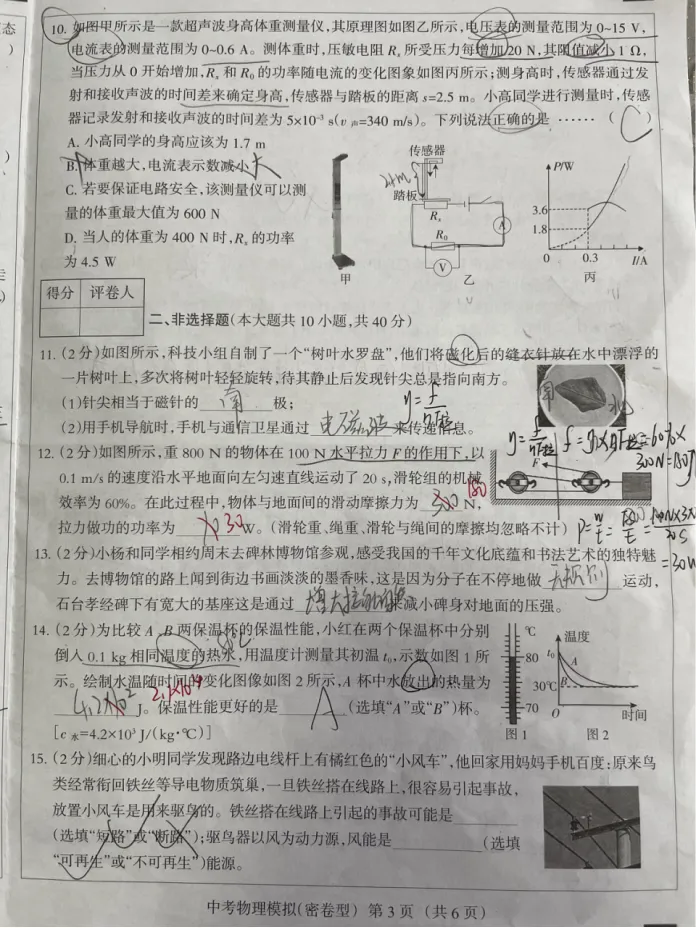 10. 如图甲所示是一款超声波身高体重测量仪,其原理图如图乙所示,电压表的测量范围为 0~15 V,
电流表的测量范围为 0~0.6 A。测体重时,压敏电阻 Rₓ 所受压力每增加 20 N,其阻值减小 1 Ω,
当压力从 0 开始增加,Rₓ 和 R₀ 的功率随电流的变化图象如图丙所示;测身高时,传感器通过发
射和接收声波的时间差来确定身高,传感器与踏板的距离 s=2.5 m。小高同学进行测量时,传感
器记录发射和接收声波的时间差为 5×10⁻³ s(v声=340 m/s)。下列说法正确的是 …… ( C )
A. 小高同学的身高应该为 1.7 m
B. 体重越大,电流表示数减小 大
C. 若要保证电路安全,该测量仪可以测
量的体重最大值为 600 N
D. 当人的体重为 400 N 时,Rₓ 的功率
为 4.5 W
甲
传感器
踏板
Rₓ
R₀
A
V
乙
P/W
3.6
1.8
0
0.3
I/A
丙
得分 评卷人
二、非选择题(本大题共 10 小题,共 40 分)
11. (2 分)如图所示,科技小组自制了一个“树叶水罗盘”,他们将磁化后的缝衣针放在水中漂浮的
一片树叶上,多次将树叶轻轻旋转,待其静止后发现针尖总是指向南方。
(1)针尖相当于磁针的 南 极;
(2)用手机导航时,手机与通信卫星通过 电磁波 来传递信息。
南
北
12. (2 分)如图所示,重 800 N 的物体在 100 N 水平拉力 F 的作用下,以
0.1 m/s 的速度沿水平地面向左匀速直线运动了 20 s,滑轮组的机械
效率为 60%。在此过程中,物体与地面间的滑动摩擦力为 180 N,
拉力做功的功率为 30 W。(滑轮重、绳重、滑轮与绳间的摩擦均忽略不计)
F
=60%×
300N=180N
=30W
13. (2 分)小杨和同学相约周末去碑林博物馆参观,感受我国的千年文化底蕴和书法艺术的独特魅
力。去博物馆的路上闻到街边书画淡淡的墨香味,这是因为分子在不停地做 无规则 运动,
石台孝经碑下有宽大的基座这是通过 增大接触面积 来减小碑身对地面的压强。
14. (2 分)为比较 A、B 两保温杯的保温性能,小红在两个保温杯中分别
倒入 0.1 kg 相同温度的热水,用温度计测量其初温 t₀,示数如图 1 所
示。绘制水温随时间的变化图像如图 2 所示,A 杯中水放出的热量为
J。保温性能更好的是 A (选填“A”或“B”)杯。
[c水=4.2×10³ J/(kg·℃)]
℃
80
70
图 1
温度
t₀
A
30℃
B
O
时间
图 2
15. (2 分)细心的小明同学发现路边电线杆上有橘红色的“小风车”,他回家用妈妈手机百度:原来鸟
类经常衔回铁丝等导电物质筑巢,一旦铁丝搭在线路上,很容易引起事故,
放置小风车是用来驱鸟的。铁丝搭在线路上引起的事故可能是
(选填“短路”或“断路”);驱鸟器以风为动力源,风能是 (选填
“可再生”或“不可再生”)能源。
中考物理模拟(密卷型) 第 3 页 (共 6 页)